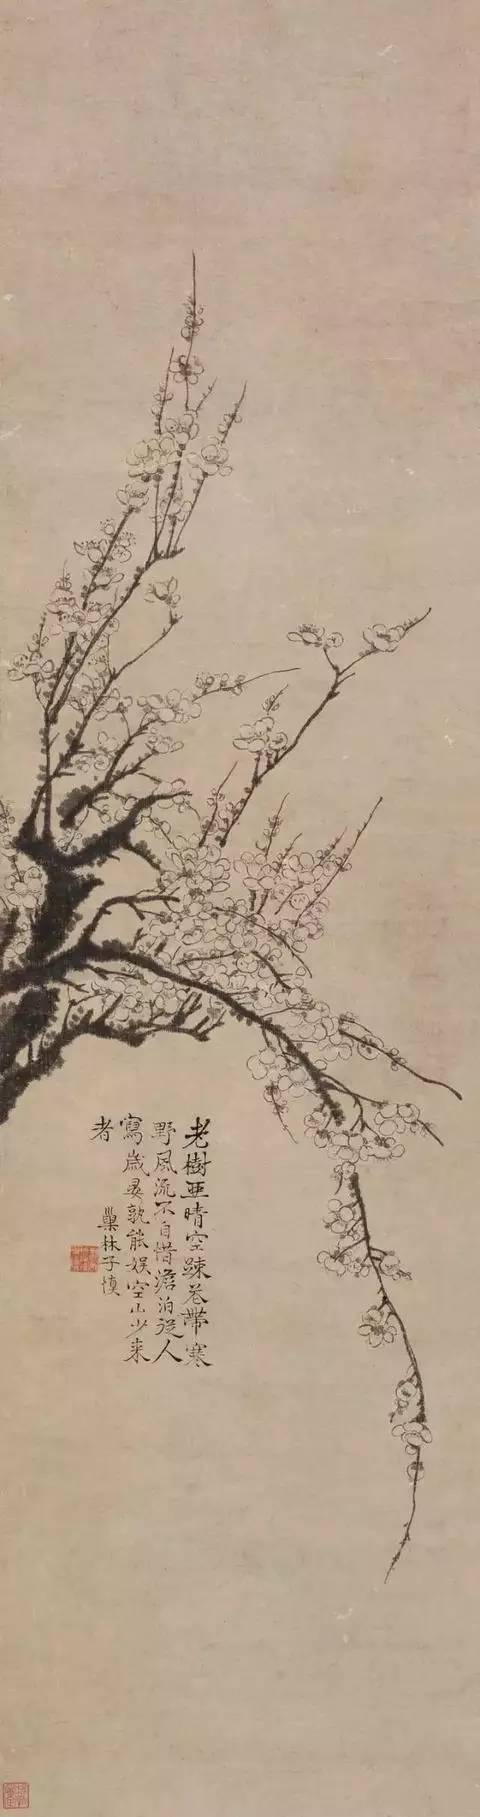 老樹亜晴空疎花帶寒
野風流不自惜澹泊從人
寫歲晏孰能娛空山少来
者
巢林子慎